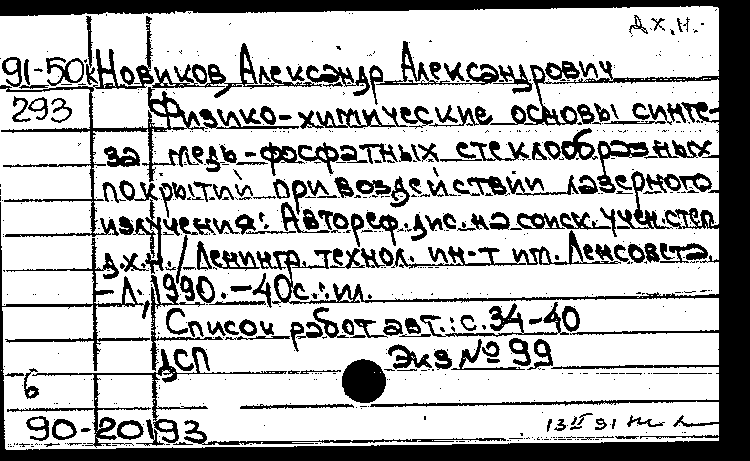 д.х.н.
91-50к Новиков, Александр Александрович
293 Физико-химические основы синте-
за медь-фосфатных стеклообразных
покрытий при воздействии лазерного
излучения: Автореф. дис. на соиск. учен. степ.
д.х.н. / Ленингр. технол. ин-т им. Ленсовета.
– Л., 1990. – 40 с.: ил.
Список работ авт.: с. 34-40
ДСП Экз № 99
6
90-20193
13 II 91